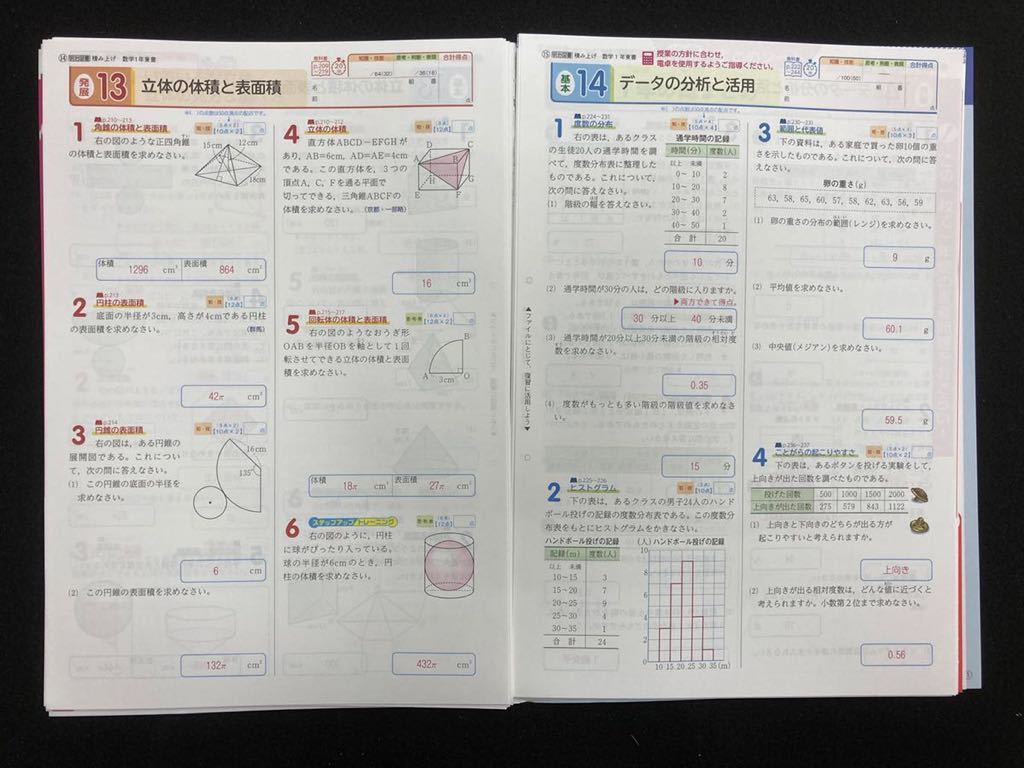 ⑭ 積み上げ 数学1年東書
教科書 p.209~219
20分
知識・技能 思考・判断・表現 合計得点
/64(32) /36(18)
名前 組 番 点
発展 13 立体の体積と表面積
1 p.210~213 角錐の体積と表面積
右の図のような正四角錐
の体積と表面積を求めなさい。
15cm 12cm
18cm
体積 1296 cm³ 表面積 864 cm²
2 p.213 円柱の表面積
底面の半径が3cm，高さが4cmである円柱
の表面積を求めなさい。 (群馬)
42π cm²
3 p.214 円錐の表面積
右の図は，ある円錐の
展開図である。これについ
て，次の問に答えなさい。
(1) この円錐の底面の半径を
求めなさい。
16cm
135°
6 cm
(2) この円錐の表面積を求めなさい。
132π cm²
4 p.210~212 立体の体積
直方体ABCD－EFGHが
あり，AB=6cm，AD=AE=4cm
である。この直方体を，3つの
頂点A，C，Fを通る平面で
切ってできる，三角錐ABCFの
体積を求めなさい。 (京都・一部略)
D C
A B
H G
E F
16 cm³
5 p.215~217 回転体の体積と表面積
右の図のようなおうぎ形
OABを半径OBを軸として1回
転させてできる立体の体積と表面
積を求めなさい。
B
A O
3cm
体積 18π cm³ 表面積 27π cm²
6 ステップアップトレーニング
右の図のように，円柱
に球がぴったり入っている。
球の半径が6cmのとき，円
柱の体積を求めなさい。
432π cm³
⑮ 積み上げ 数学1年東書
授業の方針に合わせ，
電卓を使用するようご指導ください。
教科書 p.222~244
20分
知識・技能 思考・判断・表現 合計得点
/100(50)
名前 組 番 点
基本 14 データの分析と活用
1 p.224~231 度数の分布
右の表は，あるクラス
の生徒20人の通学時間を調
べて，度数分布表に整理した
ものである。これについて，
次の問に答えなさい。
(1) 階級の幅を答えなさい。
通学時間の記録
時間(分) 度数(人)
以上 未満
0～10 2
10～20 8
20～30 7
30～40 2
40～50 1
合計 20
10 分
(2) 通学時間が30分の人は，どの階級に入りますか。
▶両方できて得点。
30 分以上 40 分未満
(3) 通学時間が20分以上30分未満の階級の相対度
数を求めなさい。
0.35
(4) 度数がもっとも多い階級の階級値を求めなさ
い。
15 分
▲ファイルにとじて，復習に活用しよう▼
2 p.225~226 ヒストグラム
下の表は，あるクラスの男子24人のハンド
ボール投げの記録の度数分布表である。この度数分
布表をもとにヒストグラムをかきなさい。
ハンドボール投げの記録
記録(m) 度数(人)
以上 未満
10～15 3
15～20 7
20～25 9
25～30 4
30～35 1
合計 24
(人) ハンドボール投げの記録
10
8
6
4
2
0
10 15 20 25 30 35(m)
3 範囲と代表値
下の資料は，ある家庭で買った卵10個の重
さを示したものである。これについて，次の問に答
えなさい。
卵の重さ(g)
63, 58, 65, 60, 57, 58, 62, 63, 56, 59
(1) 卵の重さの分布の範囲(レンジ)を求めなさい。
9 g
(2) 平均値を求めなさい。
60.1 g
(3) 中央値(メジアン)を求めなさい。
59.5 g
4 p.236~237 ことがらの起こりやすさ
下の表は，あるボタンを投げる実験をして，
上向きが出た回数を調べたものである。
投げた回数 500 1000 1500 2000
上向きが出た回数 275 579 843 1122
(1) 上向きと下向きのどちらが出る方が
起こりやすいと考えられますか。
上向き
(2) 上向きが出る相対度数は，どんな値に近づくと
考えられますか。小数第2位まで求めなさい。
0.56